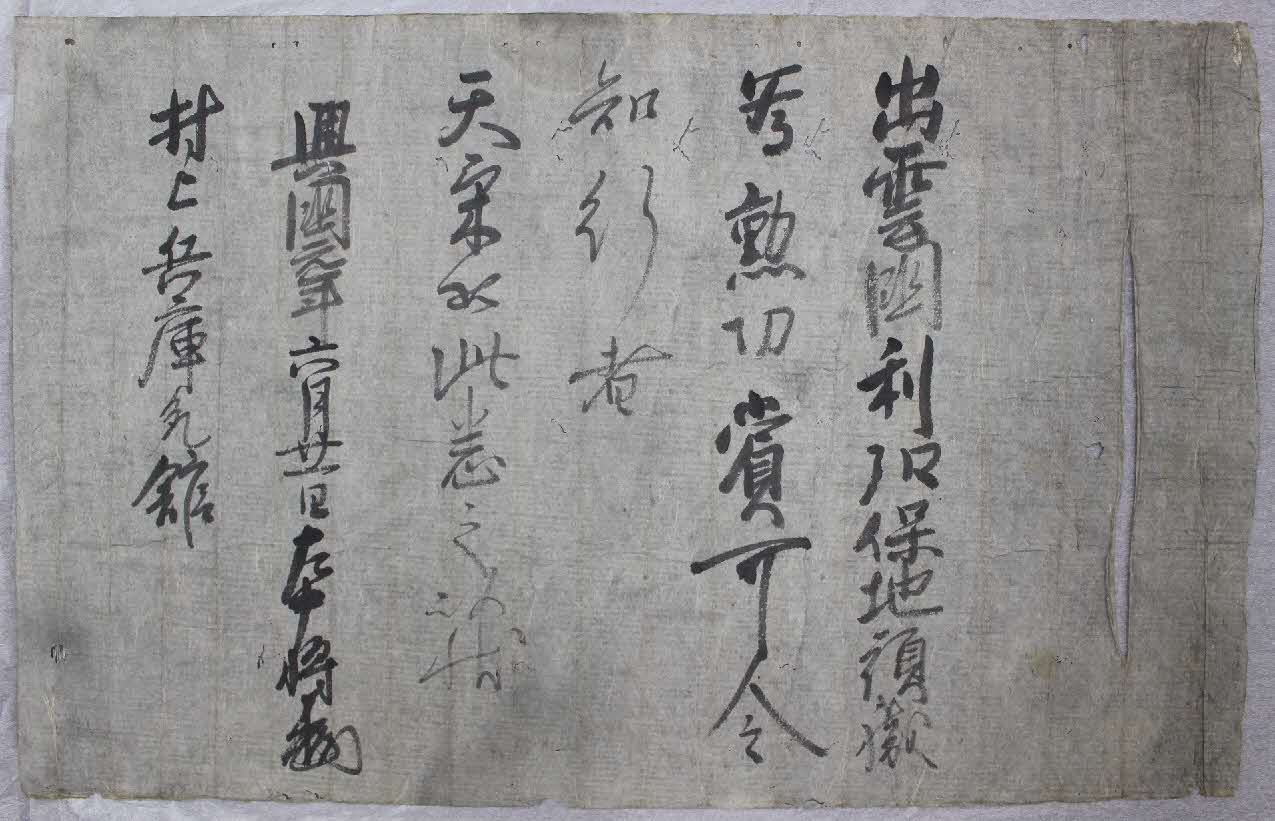 出雲國利弘保地頭職
為勲功賞可令
知行者
天気如此悉之以状
興國元年六月廿一日左中将
村上兵庫允館